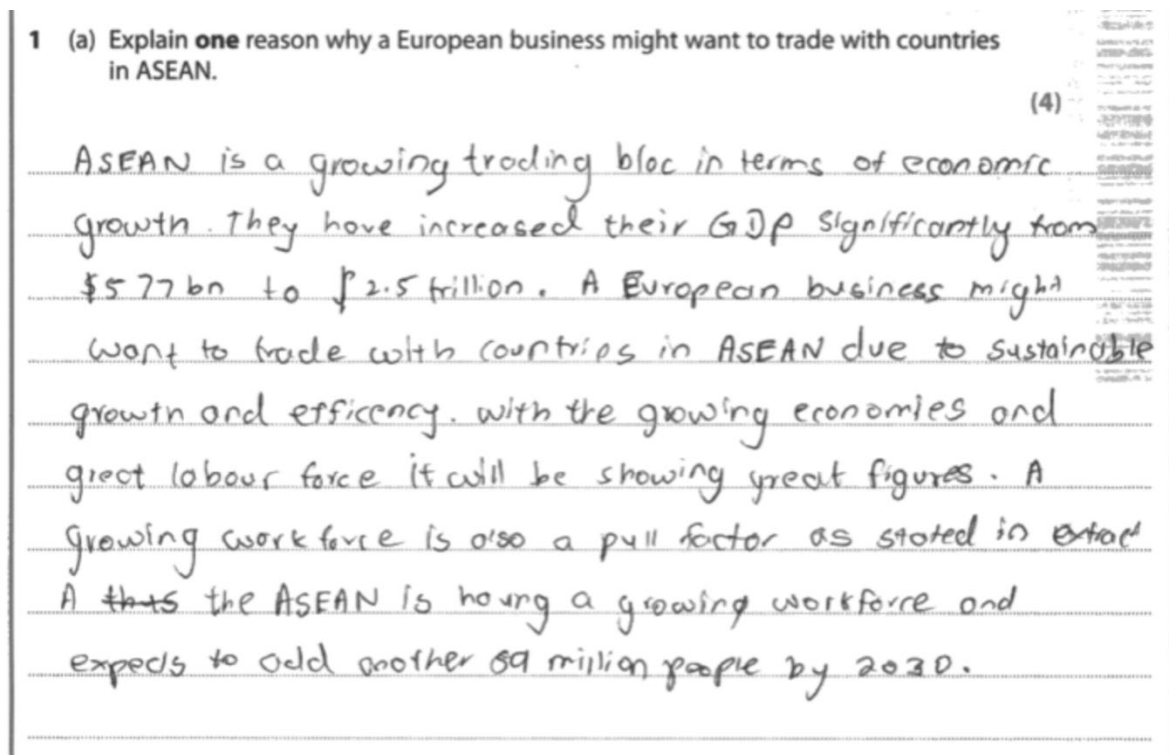 1 (a) Explain one reason why a European business might want to trade with countries
in ASEAN.
(4)
ASEAN is a growing trading bloc in terms of economic
growth. They have increased their GDP significantly from
$577 bn to $2.5 trillion. A European business might
want to trade with countries in ASEAN due to sustainable
growth and efficency. with the growing economies and
great labour force it will be showing great figures. A
growing workforce is also a pull factor as stated in extract
A thus the ASEAN is having a growing workforce and
expects to add another 59 million people by 2030.